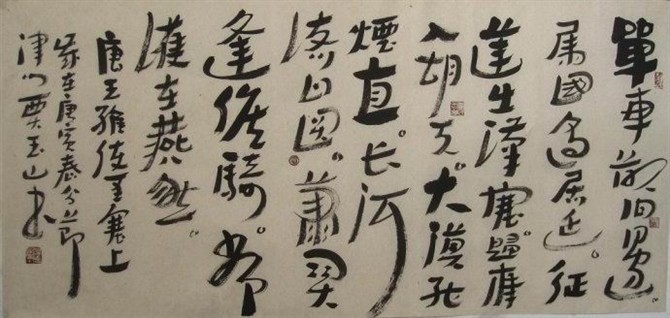 單車欲问邊。
属國過居延。征
蓬出漢塞。歸雁
入胡天。大漠孤
煙直。长河
落日圆。蕭関
逢候騎。都
護在燕然。
唐王維使至塞上
歲在庚寅春分節
津门玉山书